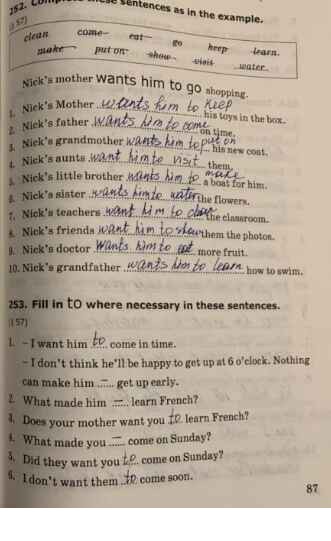 252. Complete these sentences as in the example.
(I 57)
clean come eat go keep learn
make put on show visit water
Nick's mother wants him to go shopping.
1. Nick's Mother wants him to keep his toys in the box.
2. Nick's father wants him to come on time.
3. Nick's grandmother wants him to put on his new coat.
4. Nick's aunts want him to visit them.
5. Nick's little brother wants him to make a boat for him.
6. Nick's sister wants him to water the flowers.
7. Nick's teachers want him to clean the classroom.
8. Nick's friends want him to show them the photos.
9. Nick's doctor wants him to eat more fruit.
10. Nick's grandfather wants him to learn how to swim.
253. Fill in to where necessary in these sentences.
(I 57)
1. – I want him to come in time.
– I don't think he'll be happy to get up at 6 o'clock. Nothing
can make him — get up early.
2. What made him — learn French?
3. Does your mother want you to learn French?
4. What made you — come on Sunday?
5. Did they want you to come on Sunday?
6. I don't want them to come soon.
87